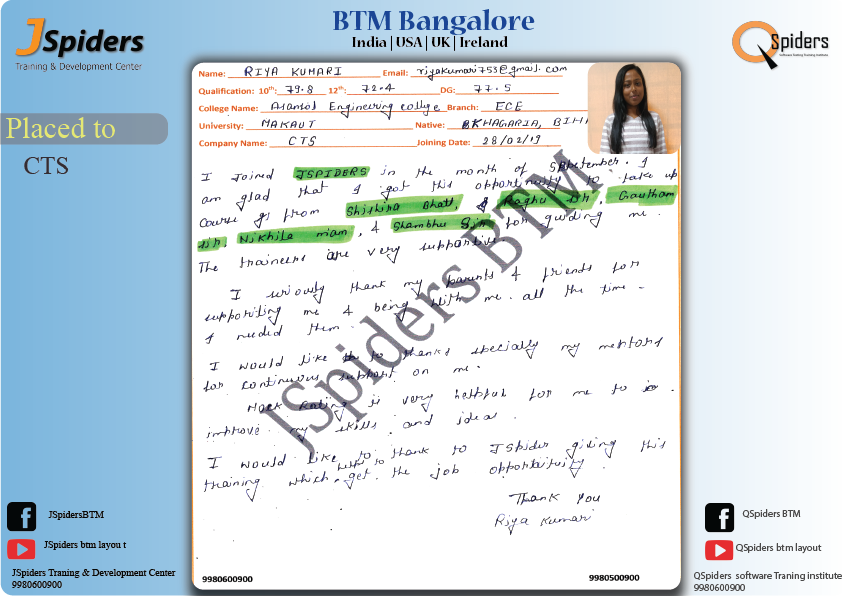 JSpiders
Training & Development Center
BTM Bangalore
India | USA | UK | Ireland
QSpiders
Software Testing Training Institute
Placed to
CTS
Name: RIYA KUMARI Email: riyakumari753@gmail.com
Qualification: 10th: 79.8 12th: 72.4 DG: 77.5
College Name: Asansol Engineering college Branch: ECE
University: MAKAUT Native: KHAGARIA, BIHA
Company Name: CTS Joining Date: 28/02/19
I Joined JSPIDERS in the month of September. I
am glad that I got this opportunity to take up
course gs from Shishira Bhatt, & Raghu sir, Gautham
sir, Nikhila mam, & Shambhu Sir for guiding me.
The traineers are very supportive.
I seriously thank my parents & friends for
supporiting me & being with me. all the time -
I needed them.
I would like to thanks specially my mentors
for continuous support on me.
Mock Rating is very helpful for me to
improve my skills and idea.
I would like to thank to JSpider giving this
training which helps to get the job opportunity.
Thank you
Riya Kumari
JSpiders BTM
9980600900 9980500900
JSpidersBTM
JSpiders btm layou t
JSpiders Traning & Development Center
9980600900
QSpiders BTM
QSpiders btm layout
QSpiders software Traning institute
9980600900